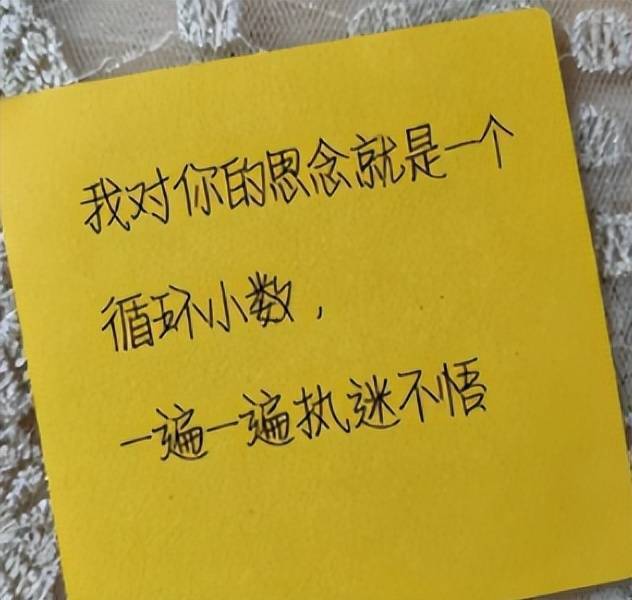 我对你的思念就是一个
循环小数，
一遍一遍执迷不悟